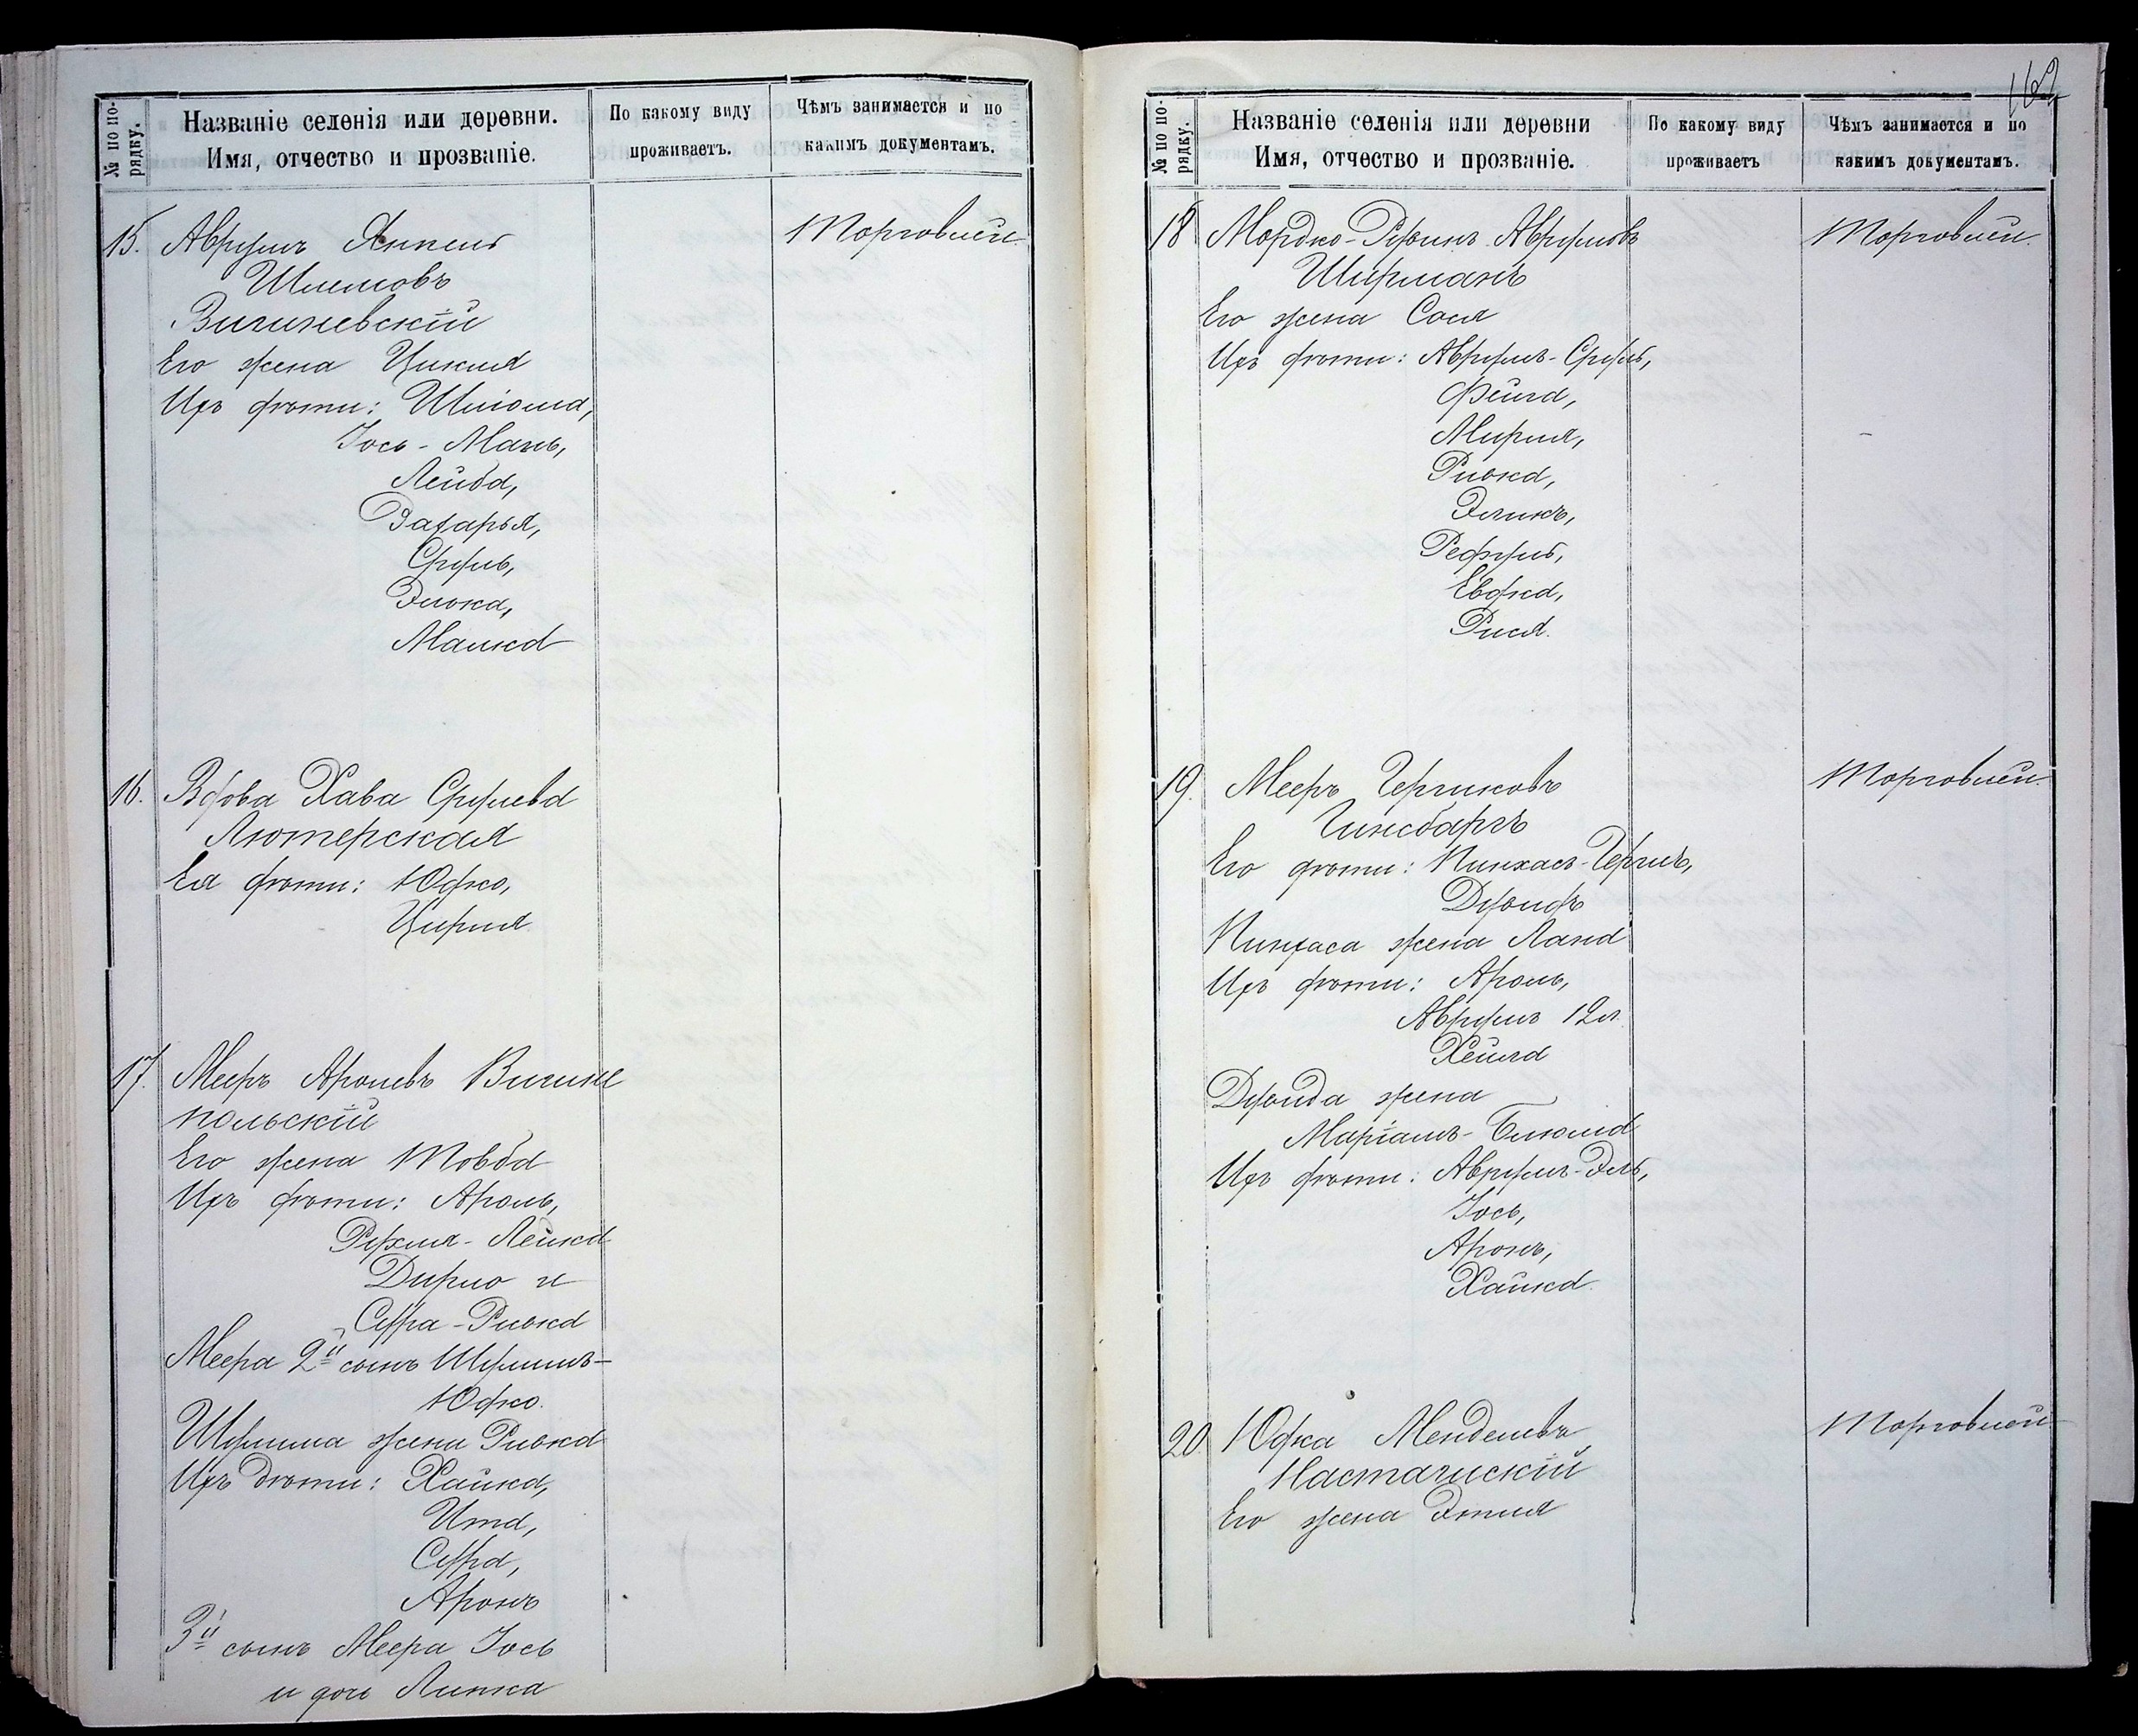 № по по-
рядку.
Названіе селенія или деревни.
Имя, отчество и прозваніе.
По какому виду
проживаетъ.
Чѣмъ занимается и по
какимъ документамъ.
15. Аврумъ Янкель Торговлей
Шлемовъ
Вишневскій
Его жена Цикля
Ихъ дѣти: Шліома,
Іось-Мань,
Лейба,
Захарья,
Сруль,
Эльока,
Малка
16. Вдова Хава Срулева
Лютерская
Ея дѣти: Юдко,
Цирля
17. Мееръ Ароновъ
польскій
Его жена Товба
Ихъ дѣти: Ароль,
Рухля-Лейка
и
Сура-Ривка
Меера 2й сынъ Шулимъ-
Юдко.
Шулима жена Ривка
Ихъ дѣти: Хайка,
Ита,
Сура,
Аронъ
3й сынъ Меера Іось
и дочь Липка
162
№ по по-
рядку.
Названіе селенія или деревни
Имя, отчество и прозваніе.
По какому виду
проживаетъ
Чѣмъ занимается и по
какимъ документамъ.
18 Мордко-Рувинъ Аврумовъ Торговлей.
Ширманъ
Его жена Сося
Ихъ дѣти: Аврумъ-Сруль,
Фейга,
Мирля,
Ривка,
Эликъ,
Рефуль,
Евдка,
Рися.
19. Мееръ Гершковъ Торговлей.
Гинсбаргъ
Его дѣти: Пинхасъ-Гершъ,
Дувидъ
Пинхаса жена Лана
Ихъ дѣти: Ароль,
Аврумъ 12л.
Хейла
Дувида жена
Маріамъ-Блюма
Ихъ дѣти: Аврумъ-Эль,
Іось,
Аронъ,
Хайка.
20. Юдка Менделевъ Торговлей
Его жена Этля